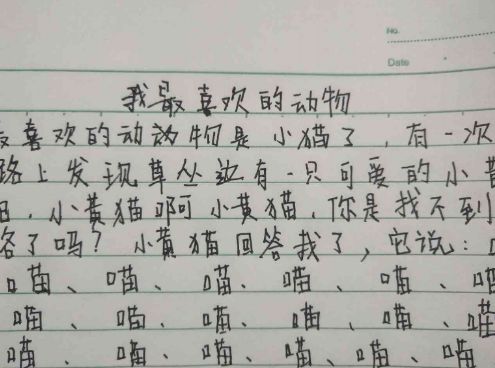 No.
Date
我最喜欢的动物
最喜欢的动物是小猫了,有一次
路上发现草丛边有一只可爱的小黄
,小黄猫啊小黄猫,你是找不到
了吗?小黄猫回答我了,它说:
喵、喵、喵、喵、喵、喵
喵、喵、喵、喵、喵、喵
喵、喵、喵、喵、喵、喵